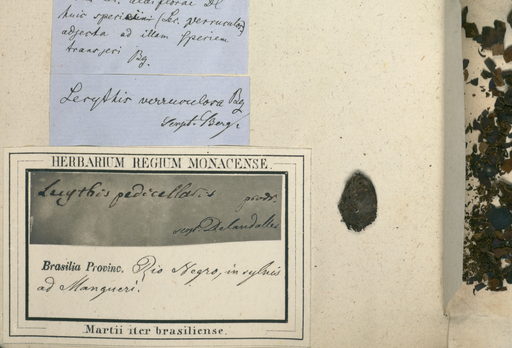 huic specimini (Lec. verruculos.
adjecta ad illam speciem
transferi
Bg.
Lecythis verruculosa Bg
scrpt. Berg.
HERBARIUM REGIUM MONACENSE.
Lecythis pedicellaris prodr.
scrpt. Decandolle
Brasilia Provinc. Rio Negro, in sylvis
ad Manqueri.
Martii iter brasiliense.